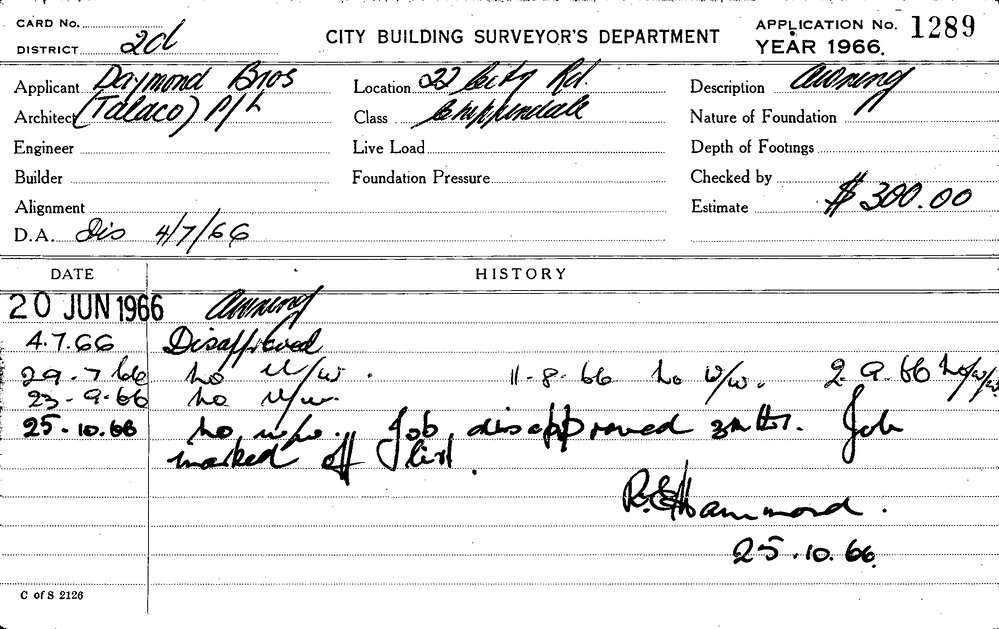 CARD No.
DISTRICT 2d
CITY BUILDING SURVEYOR'S DEPARTMENT
APPLICATION No. 1289
YEAR 1966.
Applicant Daymond Bros
Location 22 City Rd.
Description Awning
Architect (Talaco) P/L
Class Chippendale
Nature of Foundation
Engineer
Live Load
Depth of Footings
Builder
Foundation Pressure
Checked by
Alignment
Estimate $300.00
D.A. Dis 4/7/66
DATE HISTORY
20 JUN 1966 Awning
4.7.66 Disapproved
29.7.66 no w/w. 11.8.66 no w/w. 2.9.66 no w/w.
23.9.66 no w/w.
25.10.66 no w/w. Job disapproved Job
marked off list.
R.E. Hammond.
25.10.66.
C of S 2126